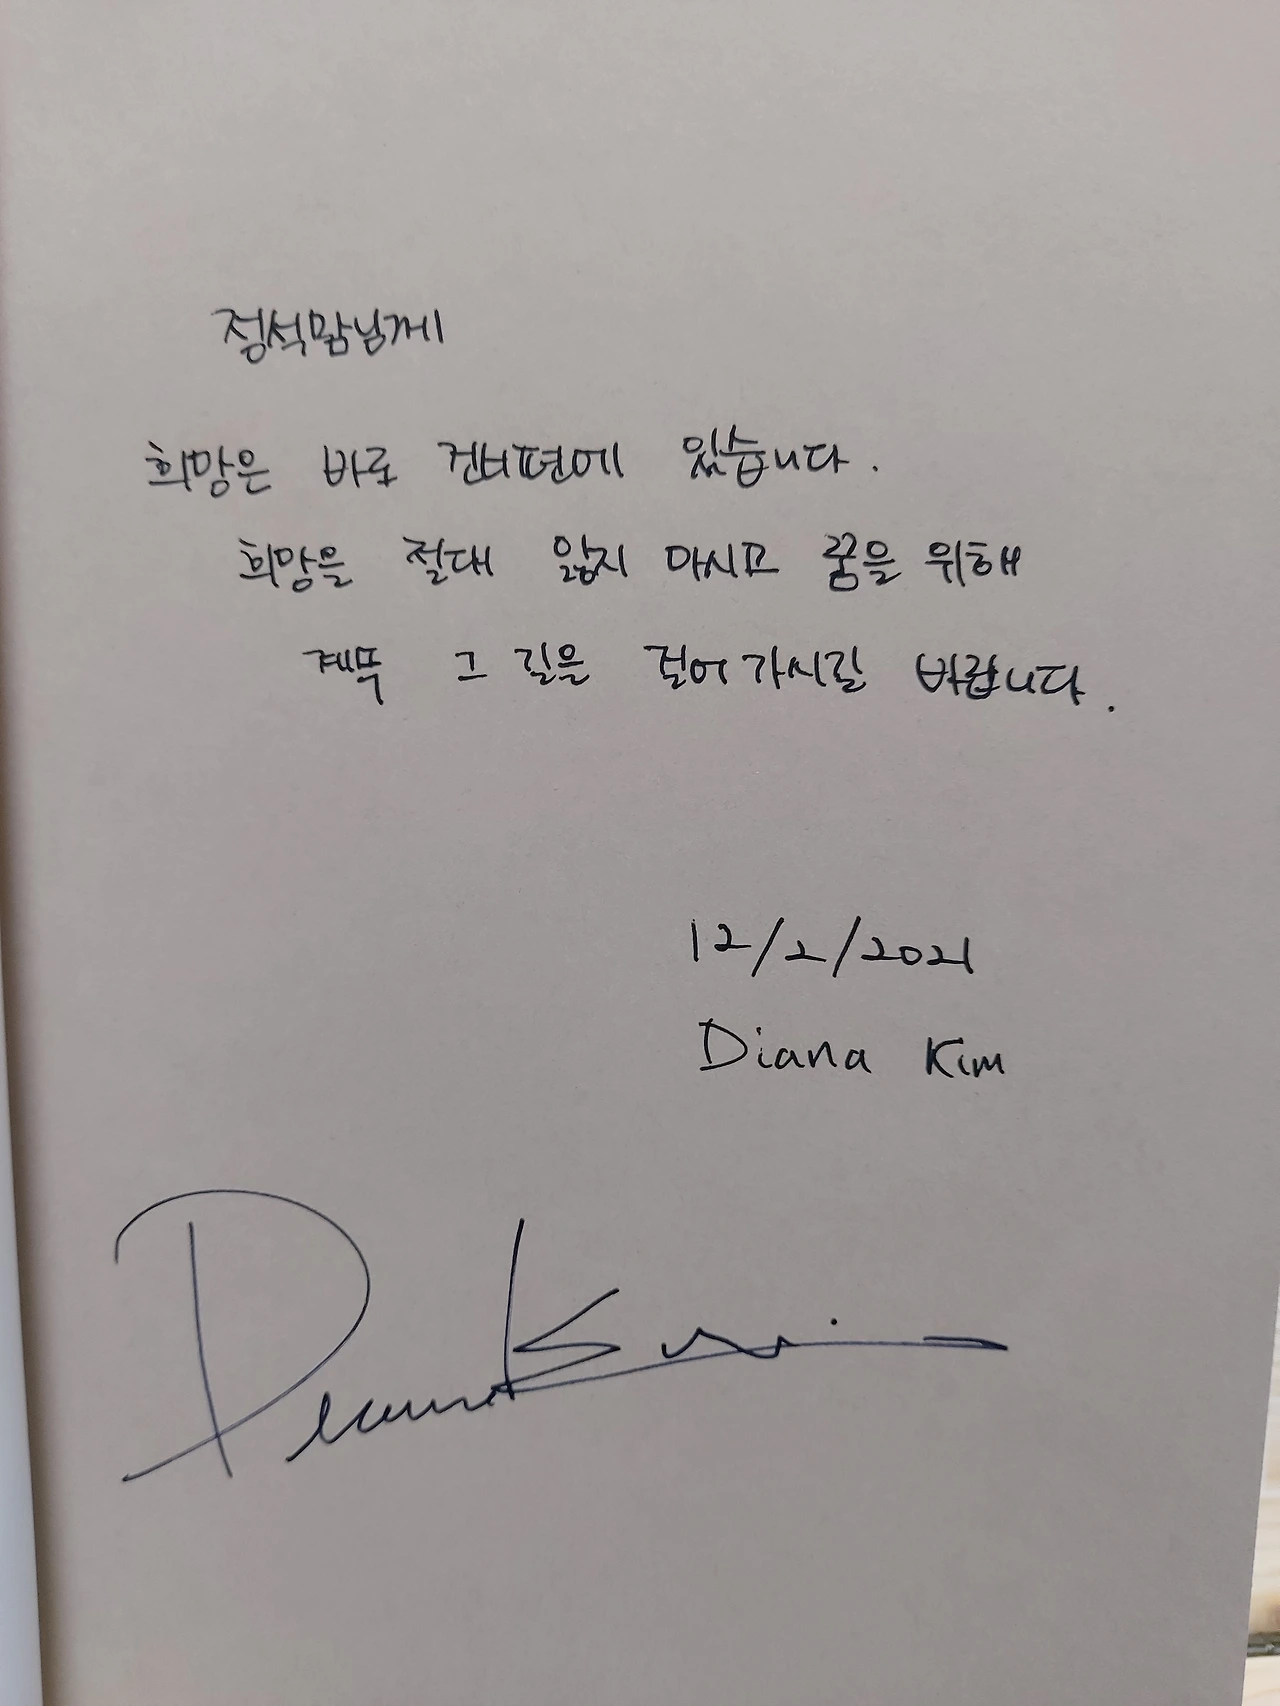 정석맘님께
희망은 바로 건너편에 있습니다.
희망을 절대 잃지 마시고 꿈을 위해
계쭉 그 길을 걸어가시길 바랍니다.
12/2/2021
Diana Kim
Diana Kim